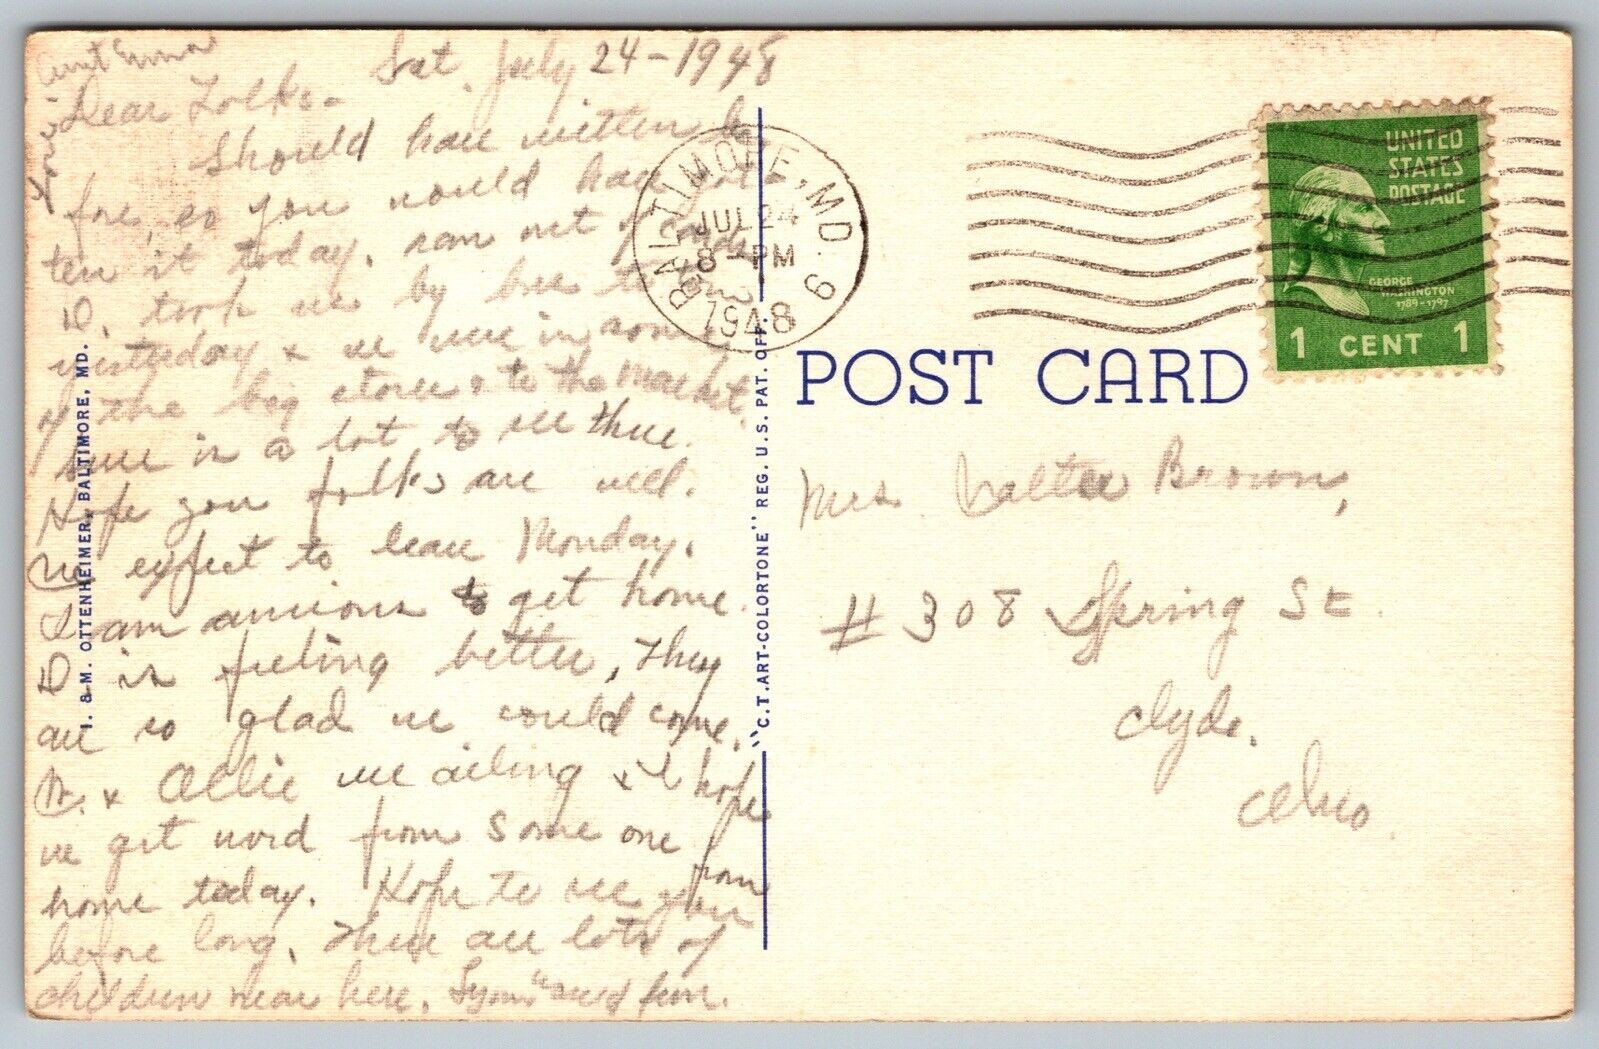 Sat. July 24-1948
Aunt Emma
Dear Folks-
Should have written be
fore, so you would have got-
ten it today, ran out of cards.
D. took us by bus to town
yesterday & we were in some
of the big stores & to the market.
were in a lot to see there.
Hope you folks are well.
We expect to leave Monday.
I am anxious to get home.
D is feeling better, They
are so glad we could come.
& Ollie were ailing & I hope
we get word from some one
from
home today. Hope to see you
before long. There are lots of
children near here. "and fun.
I. & M. OTTENHEIMER, BALTIMORE, MD.
"C. T. ART-COLORTONE" REG. U. S. PAT. OFF.
BALTIMORE, MD. 6
JUL 24
8 - PM
1948
UNITED
STATES
POSTAGE
GEORGE
WASHINGTON
1789-1797
1 CENT 1
POST CARD
Mrs. Walter Brown,
# 308 Spring St.
Clyde.
Ohio.